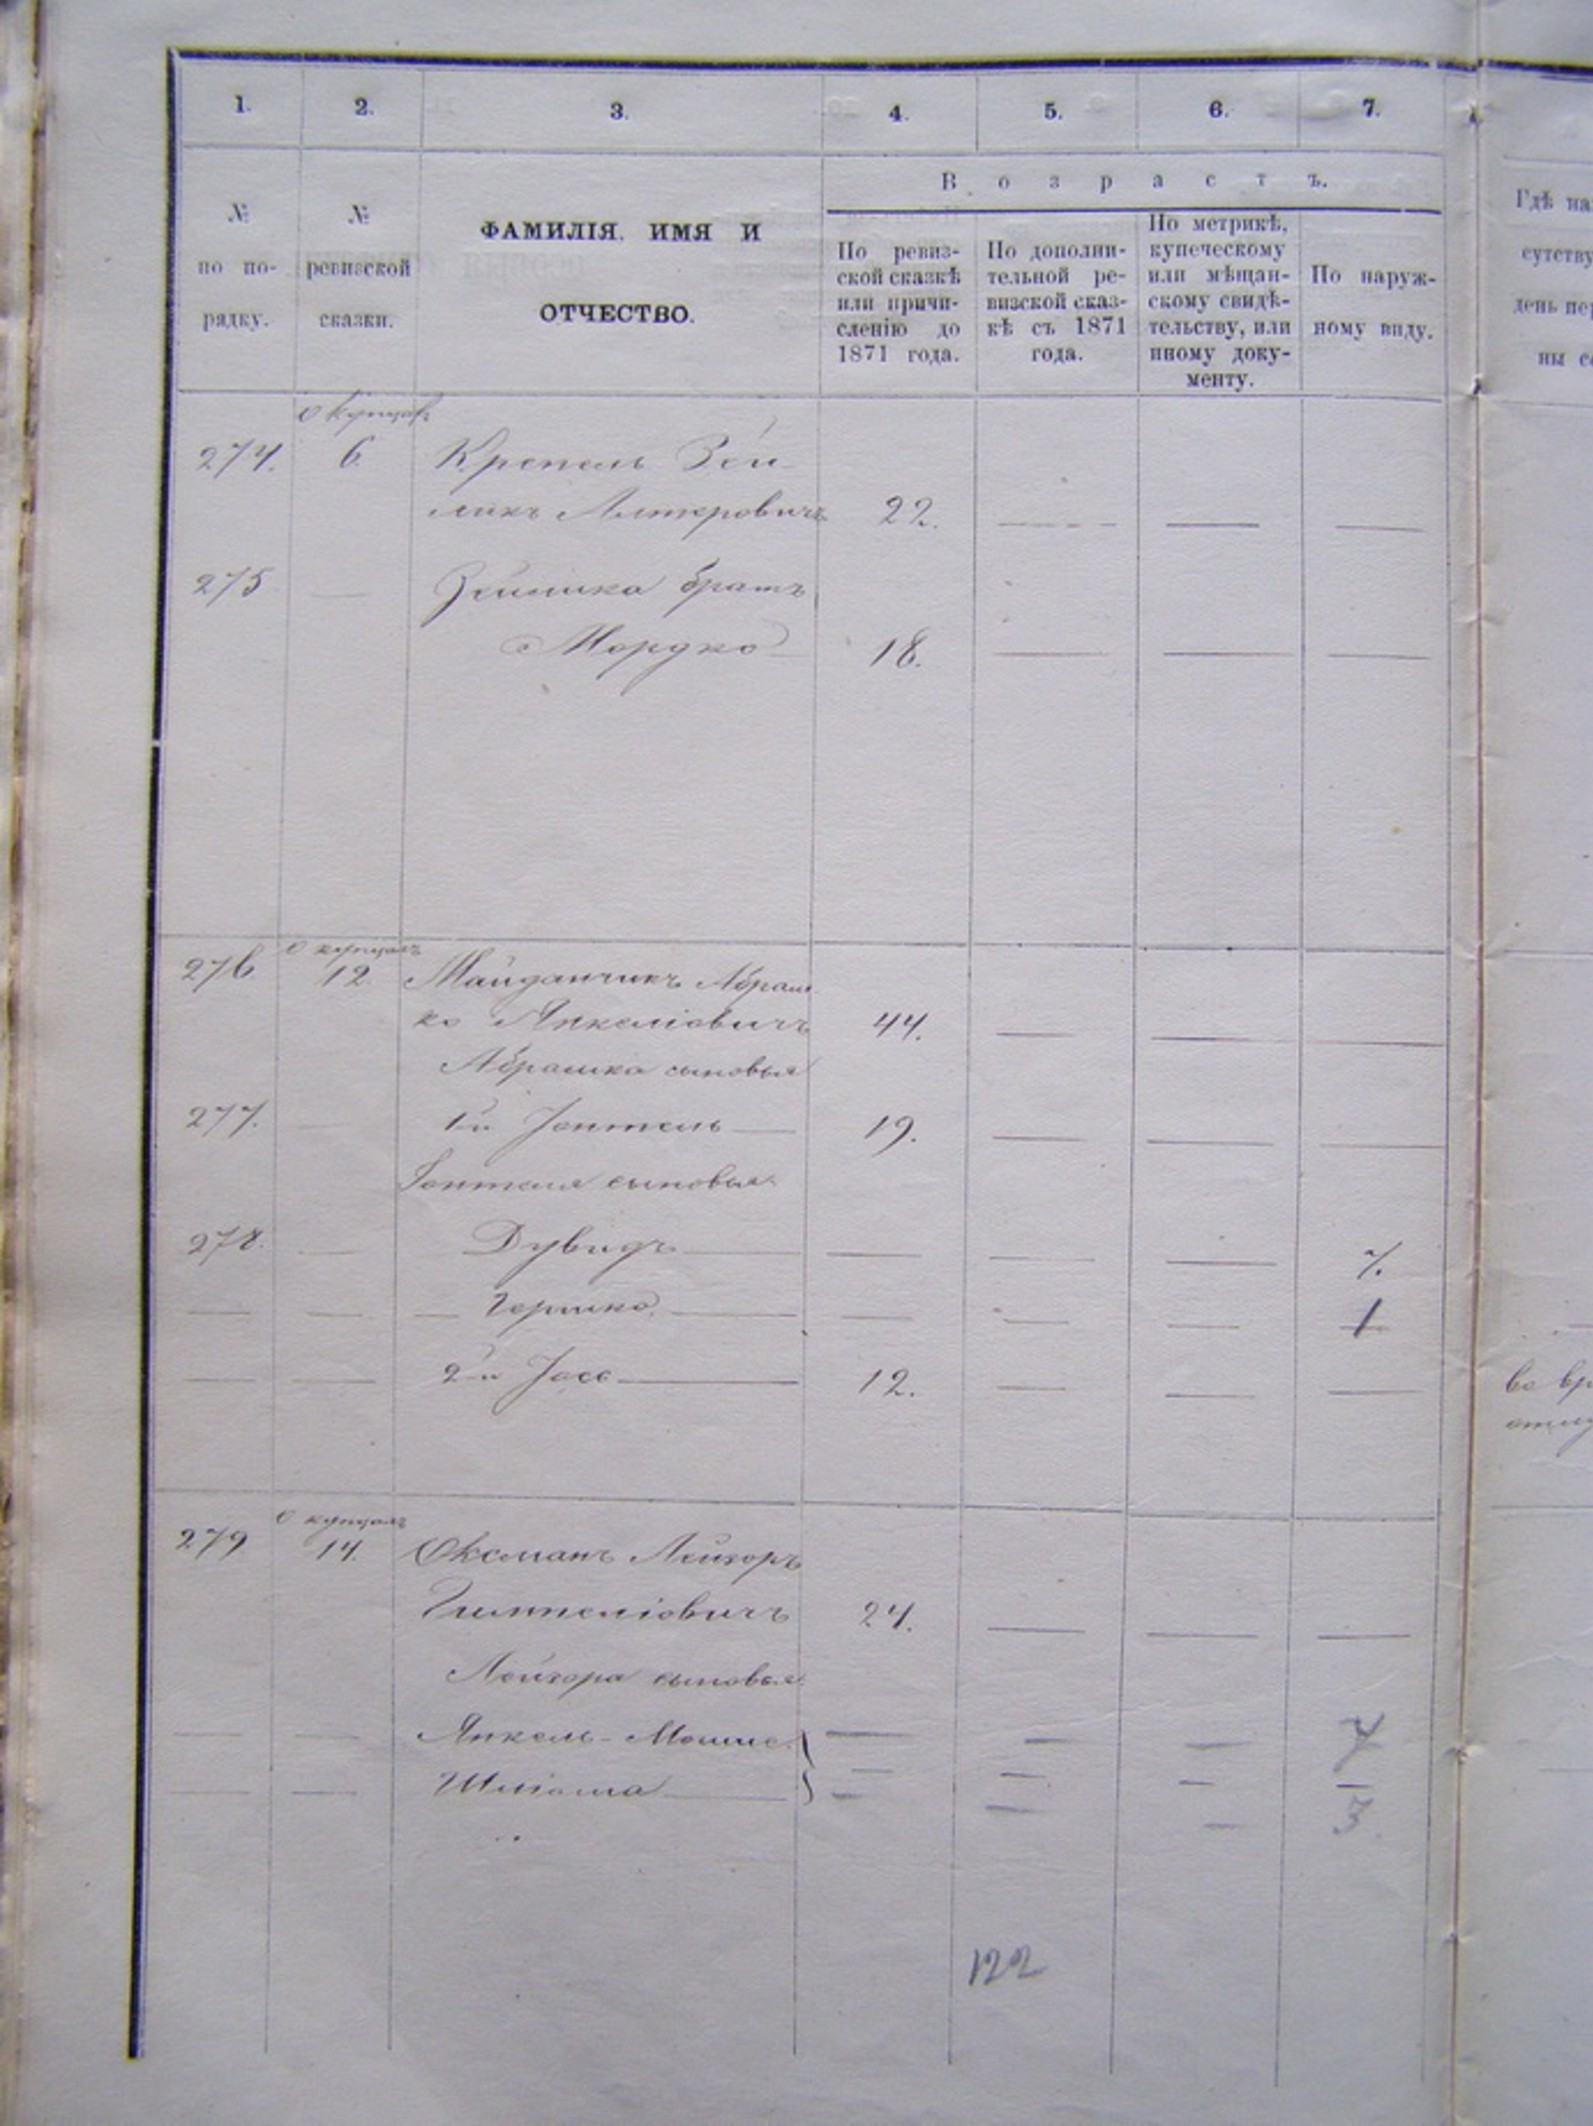 1. 2. 3. 4. 5. 6. 7.
В о з р а с т ъ.
№ по по-
рядку.
№ ревизской
сказки.
ФАМИЛІЯ, ИМЯ И
ОТЧЕСТВО.
По ревиз-
ской сказкѣ
или причи-
сленію до
1871 года.
По дополни-
тельной ре-
визской сказ-
кѣ съ 1871
года.
По метрикѣ,
купеческому
или мѣщан-
скому свидѣ-
тельству, или
иному доку-
менту.
По наруж-
ному виду.
о купцахъ
274. 6. Крепель Зей-
ликъ Алтеровичъ 22. — — —
275 — Зейлика братъ
Мордко 18. — — —
о купцахъ
276 12. Майданчикъ Абраш
ко Янкеліовичъ 44. — — —
Абрашка сыновья
277. — 1й Іонтель — 19. — — —
Іонтеля сыновья
278. — Дувидъ — — — — 7.
— — — Гершко — — — — 1
— — 2й Іосе — 12. — — —
о купцахъ
279 14. Оксманъ Лейзоръ
Гимпеліовичъ 24. — — —
Лейзора сыновья
— — Янкель-Мошше — — — 4
— — Шліома — — — — 3
122
Гдѣ на
сутству
день пер
ны со
во вр
отлу